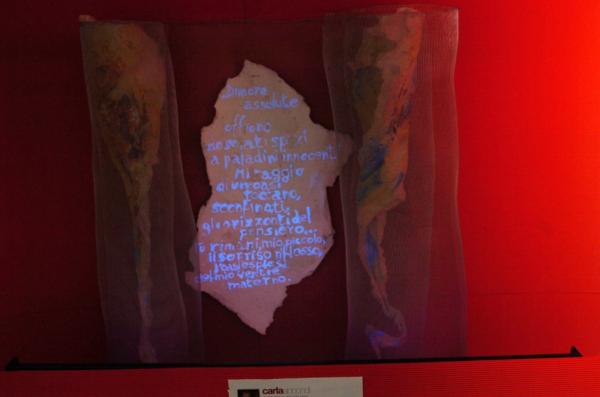 Dimore
assolute
offrono
nascosti spazi
a paladini innocenti
Miraggio
di un'oasi
toccano,
sconfinati,
gli orizzonti del
pensiero...
E rimani, mio piccolo,
il sorriso riflesso,
del mio ventre
materno.
carla